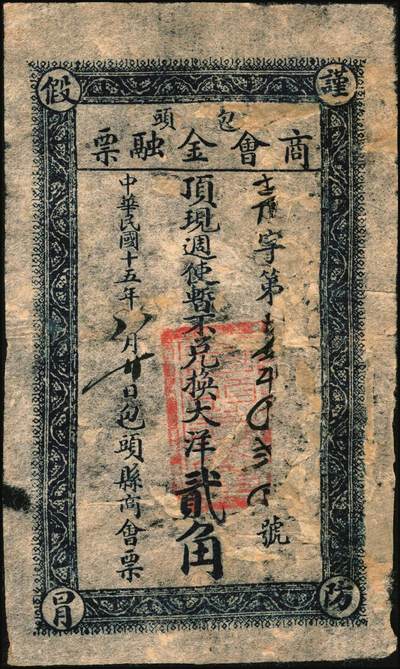 謹防假冒
包頭
商會金融票
字第號
頂現週使暫不兌換大洋貳角
中華民國十五年八月廿日包頭縣商會票